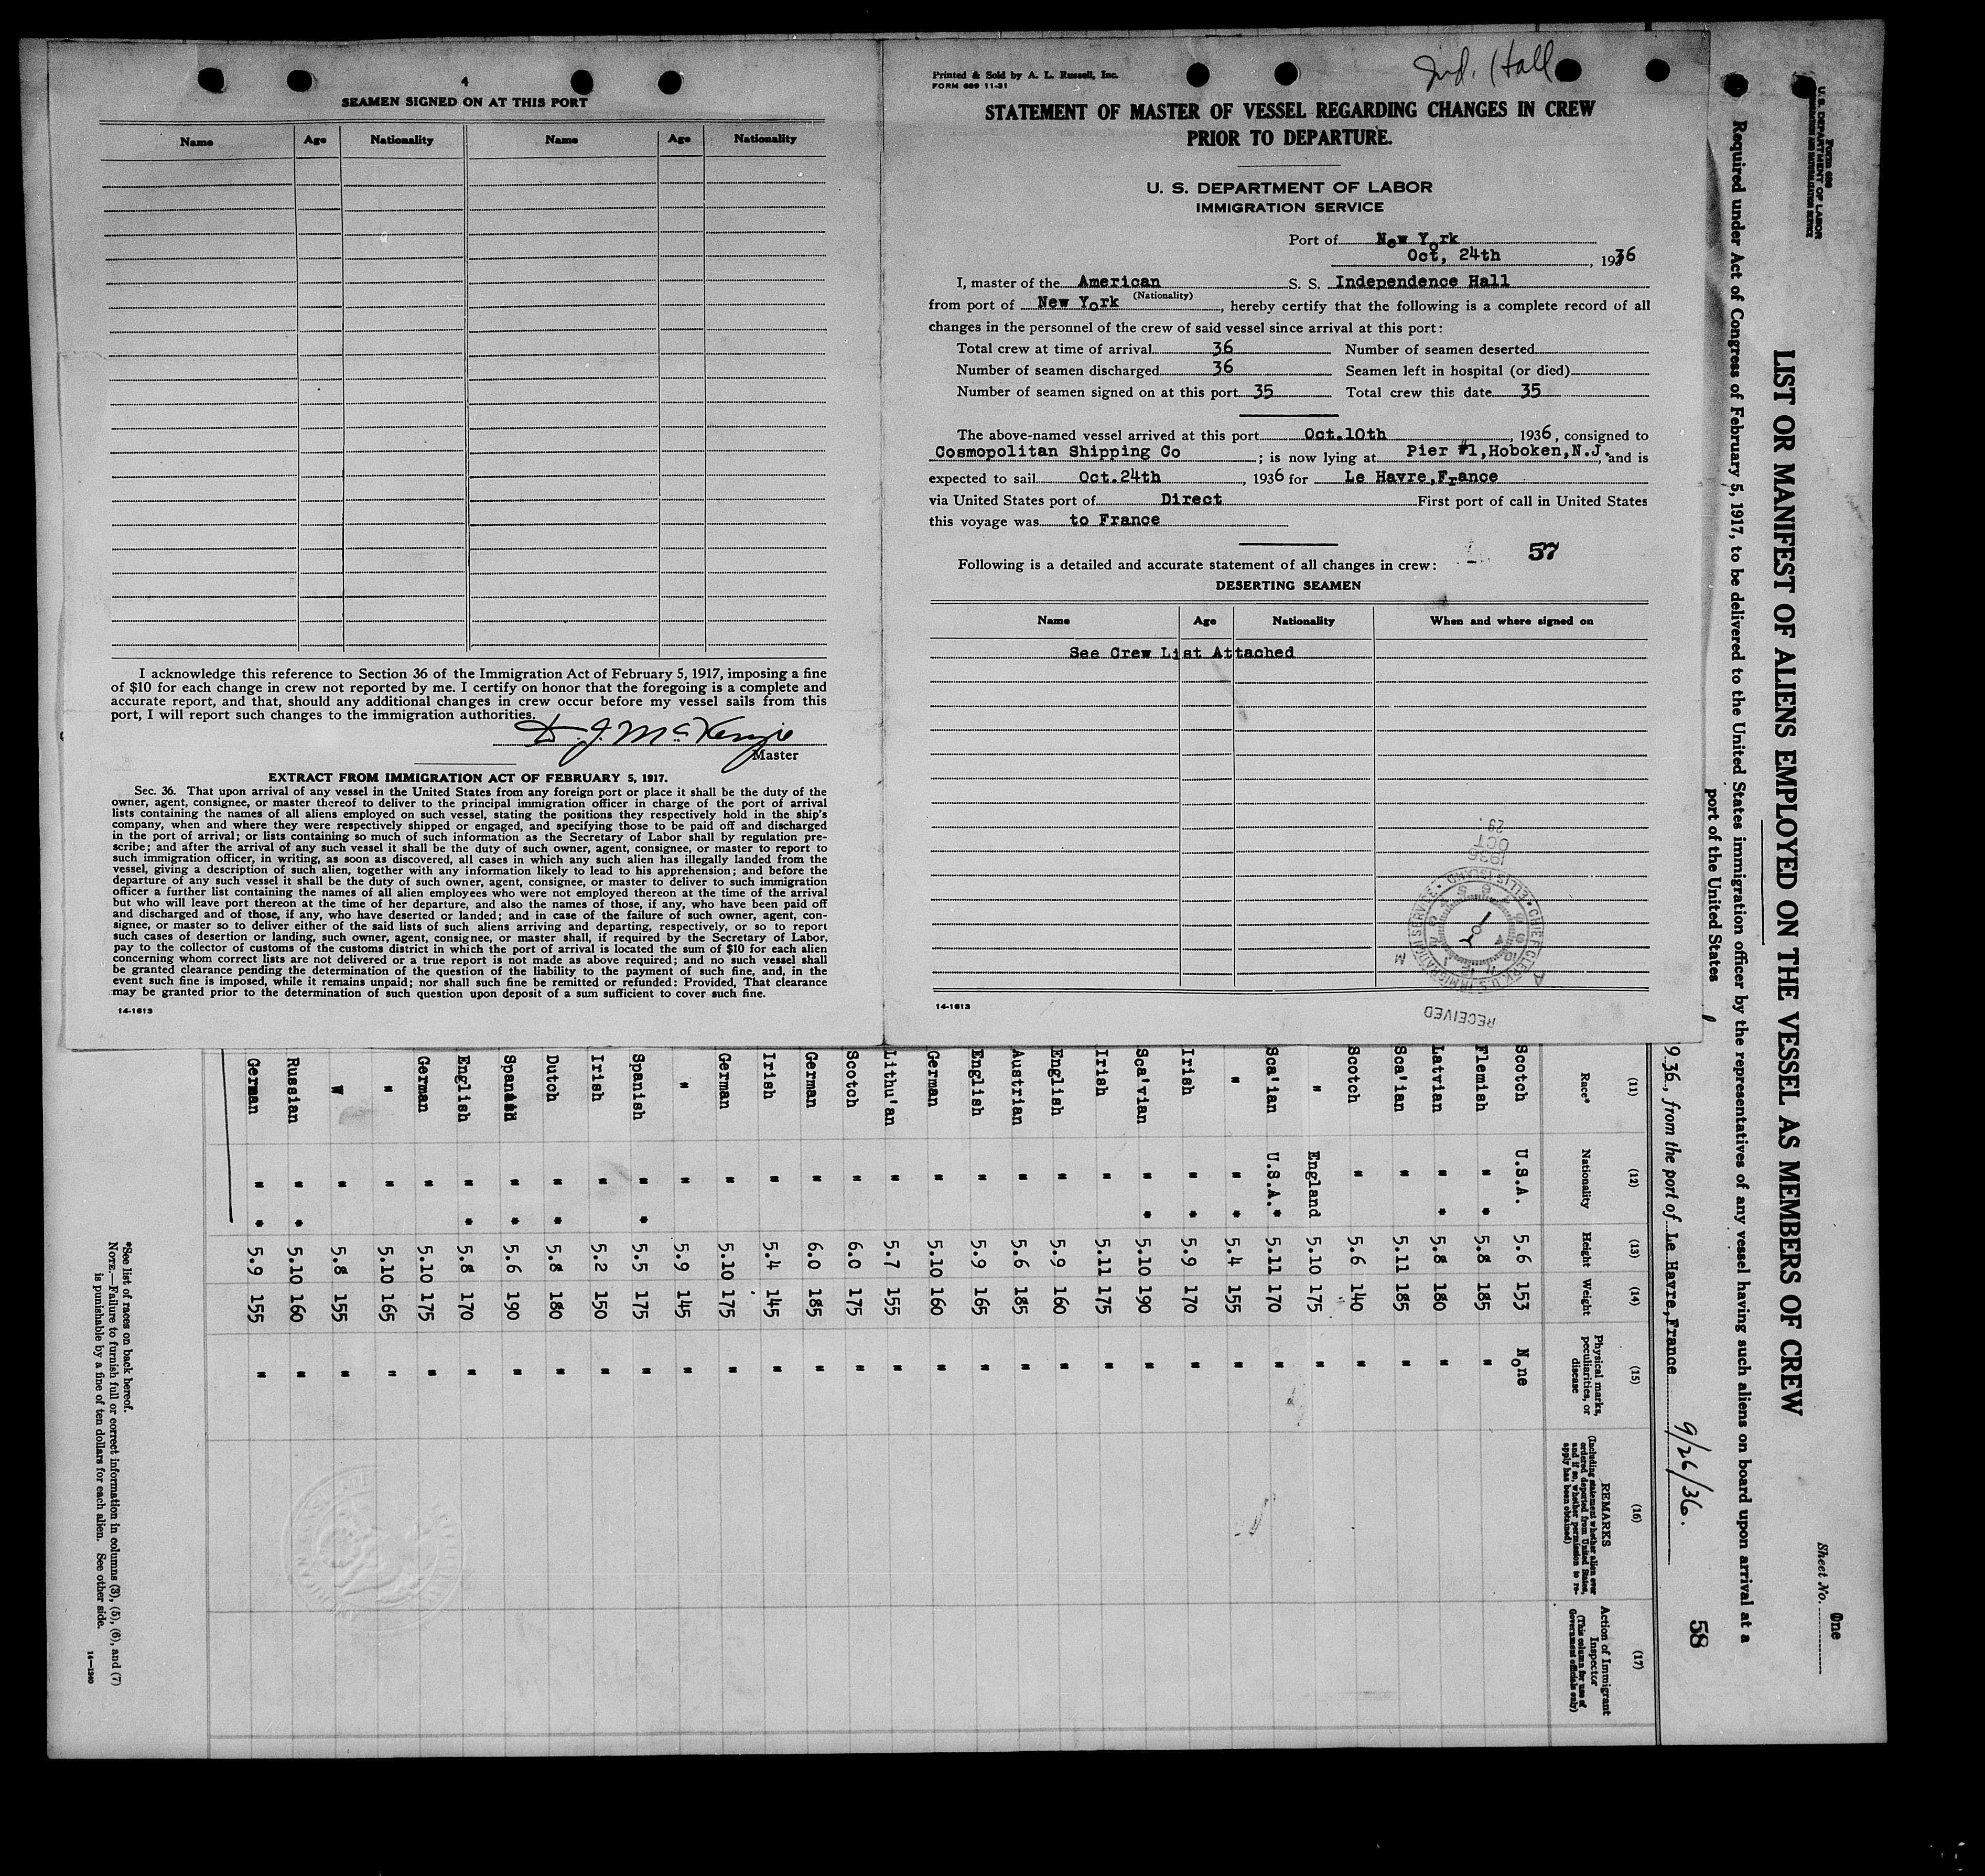 4
SEAMEN SIGNED ON AT THIS PORT
Name Age Nationality Name Age Nationality
I acknowledge this reference to Section 36 of the Immigration Act of February 5, 1917, imposing a fine
of $10 for each change in crew not reported by me. I certify on honor that the foregoing is a complete and
accurate report, and that, should any additional changes in crew occur before my vessel sails from this
port, I will report such changes to the immigration authorities.
D. J. McKenzie
Master
EXTRACT FROM IMMIGRATION ACT OF FEBRUARY 5, 1917.
Sec. 36. That upon arrival of any vessel in the United States from any foreign port or place it shall be the duty of the
owner, agent, consignee, or master thereof to deliver to the principal immigration officer in charge of the port of arrival
lists containing the names of all aliens employed on such vessel, stating the positions they respectively hold in the ship's
company, when and where they were respectively shipped or engaged, and specifying those to be paid off and discharged
in the port of arrival; or lists containing so much of such information as the Secretary of Labor shall by regulation pre-
scribe; and after the arrival of any such vessel it shall be the duty of such owner, agent, consignee, or master to report to
such immigration officer, in writing, as soon as discovered, all cases in which any such alien has illegally landed from the
vessel, giving a description of such alien, together with any information likely to lead to his apprehension; and before the
departure of any such vessel it shall be the duty of such owner, agent, consignee, or master to deliver to such immigration
officer a further list containing the names of all alien employees who were not employed thereon at the time of the arrival
but who will leave port thereon at the time of her departure, and also the names of those, if any, who have been paid off
and discharged and of those, if any, who have deserted or landed; and in case of the failure of such owner, agent, con-
signee, or master so to deliver either of the said lists of such aliens arriving and departing, respectively, or so to report
such cases of desertion or landing, such owner, agent, consignee, or master shall, if required by the Secretary of Labor,
pay to the collector of customs of the customs district in which the port of arrival is located the sum of $10 for each alien
concerning whom correct lists are not delivered or a true report is not made as above required; and no such vessel shall
be granted clearance pending the determination of the question of the liability to the payment of such fine, and, in the
event such fine is imposed, while it remains unpaid; nor shall such fine be remitted or refunded: Provided, That clearance
may be granted prior to the determination of such question upon deposit of a sum sufficient to cover such fine.
14-1613
Ind. Hall
Printed & Sold by A. L. Russell, Inc.
FORM 689 11-31
STATEMENT OF MASTER OF VESSEL REGARDING CHANGES IN CREW
PRIOR TO DEPARTURE.
U. S. DEPARTMENT OF LABOR
IMMIGRATION SERVICE
Port of New York
Oct, 24th, 1936
I, master of the American S. S. Independence Hall
(Nationality)
from port of New York, hereby certify that the following is a complete record of all
changes in the personnel of the crew of said vessel since arrival at this port:
Total crew at time of arrival 36 Number of seamen deserted
Number of seamen discharged 36 Seamen left in hospital (or died)
Number of seamen signed on at this port 35 Total crew this date 35
The above-named vessel arrived at this port Oct.10th, 1936, consigned to
Cosmopolitan Shipping Co; is now lying at Pier #1,Hoboken,N.J. and is
expected to sail Oct.24th, 1936 for Le Havre,France
via United States port of Direct First port of call in United States
this voyage was to France
57
Following is a detailed and accurate statement of all changes in crew:
DESERTING SEAMEN
Name Age Nationality When and where signed on
See Crew List Attached
29
OCT
1936
CHIEF CLERK U.S. IMMIGRATION SERVICE • ELLIS ISLAND •
A M
RECEIVED
14-1613
Form 689
U. S. DEPARTMENT OF LABOR
IMMIGRATION AND NATURALIZATION SERVICE
Sheet No. One
LIST OR MANIFEST OF ALIENS EMPLOYED ON THE VESSEL AS MEMBERS OF CREW
Required under Act of Congress of February 5, 1917, to be delivered to the United States immigration officer by the representatives of any vessel having such aliens on board upon arrival at a
port of the United States
58
9.36, from the port of Le Havre,France 9/26/36.
(11) (12) (13) (14) (15) (16) (17)
Race* Nationality Height Weight Physical marks, peculiarities, or disease REMARKS (Including statement whether alien ever ordered deported from United States, and if so, whether permission to re-apply has been obtained) Action of Immigrant Inspector (This column for use of Government officials only)
Scotch U.S.A. 5.6 153 None
Flemish " * 5.8 185 "
Latvian " * 5.8 180 "
Sca'ian " 5.11 185 "
Scotch " 5.6 140 "
" England 5.10 175 "
Sca'ian U.S.A.* 5.11 170 "
" " * 5.4 155 "
Irish " * 5.9 170 "
Sca'vian " * 5.10 190 "
Irish " 5.11 175 "
English " 5.9 160 "
Austrian " 5.6 185 "
English " 5.9 165 "
German " 5.10 160 "
Lithu'an " 5.7 155 "
Scotch " 6.0 175 "
German " 6.0 185 "
Irish " 5.4 145 "
German " 5.10 175 "
" " 5.9 145 "
Spanish " * 5.5 175 "
Irish " 5.2 150 "
Dutch " * 5.8 180 "
Spanish " * 5.6 190 "
English " * 5.8 170 "
German " 5.10 175 "
" " 5.10 165 "
" " 5.8 155 "
Russian " * 5.10 160 "
German " * 5.9 155 "
*See list of races on back hereof.
NOTE.—Failure to furnish full or correct information in columns (3), (5), (6), and (7)
is punishable by a fine of ten dollars for each alien. See other side.
14—1240